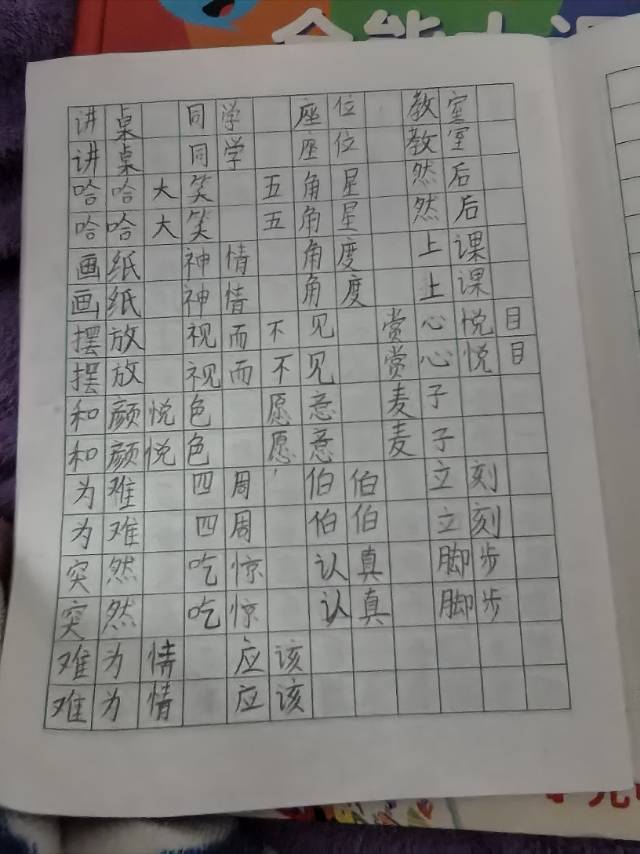 全能大
讲桌 同学 座位 教室
讲桌 同学 座位 教室
哈哈大笑 五角星 然后
哈哈大笑 五角星 然后
画纸 神情 角度 上课
画纸 神情 角度 上课
摆放 视而不见 赏心悦目
摆放 视而不见 赏心悦目
和颜悦色 愿意 麦子
和颜悦色 愿意 麦子
为难 四周 伯伯 立刻
为难 四周 伯伯 立刻
突然 吃惊 认真 脚步
突然 吃惊 认真 脚步
难为情 应该
难为情 应该